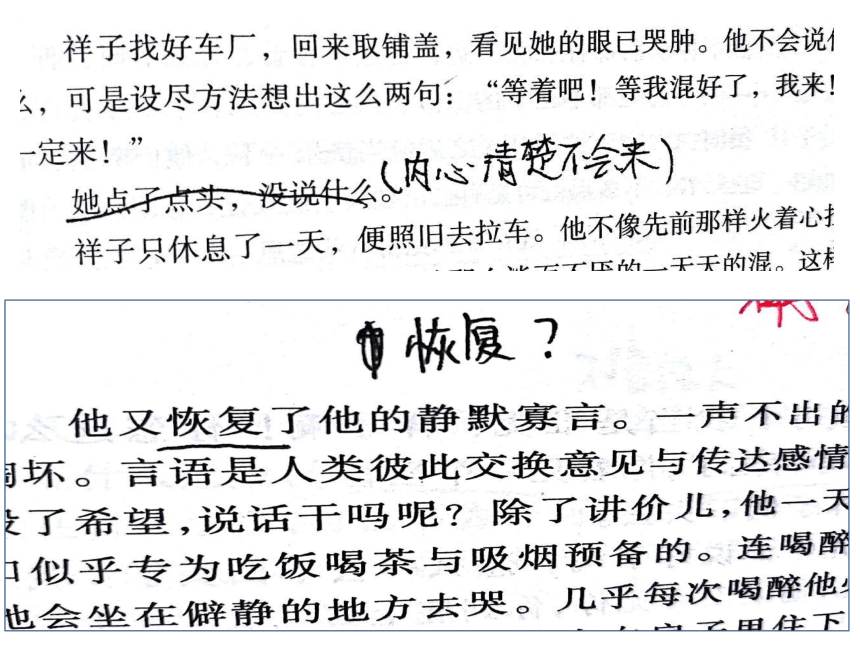 祥子找好车厂，回来取铺盖，看见她的眼已哭肿。他不会说
，可是设尽方法想出这么两句：“等着吧！等我混好了，我来！
一定来！”
(内心清楚不会来)
她点了点头，没说什么。
祥子只休息了一天，便照旧去拉车。他不像先前那样火着心
的一天天的混。这样
恢复？
他又恢复了他的静默寡言。一声不出的
坏。言语是人类彼此交换意见与传达感情
了希望,说话干吗呢？除了讲价儿,他一天
似乎专为吃饭喝茶与吸烟预备的。连喝醉
他会坐在僻静的地方去哭。几乎每次喝醉他